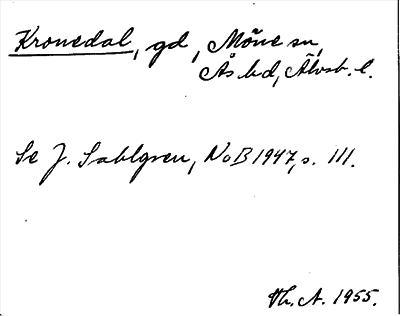 Kronedal, gd, Möne sn,
Ås hd, Älvsb. l.
Se J. Sahlgren, NoB 1947, s. 111.
Th. A. 1955.